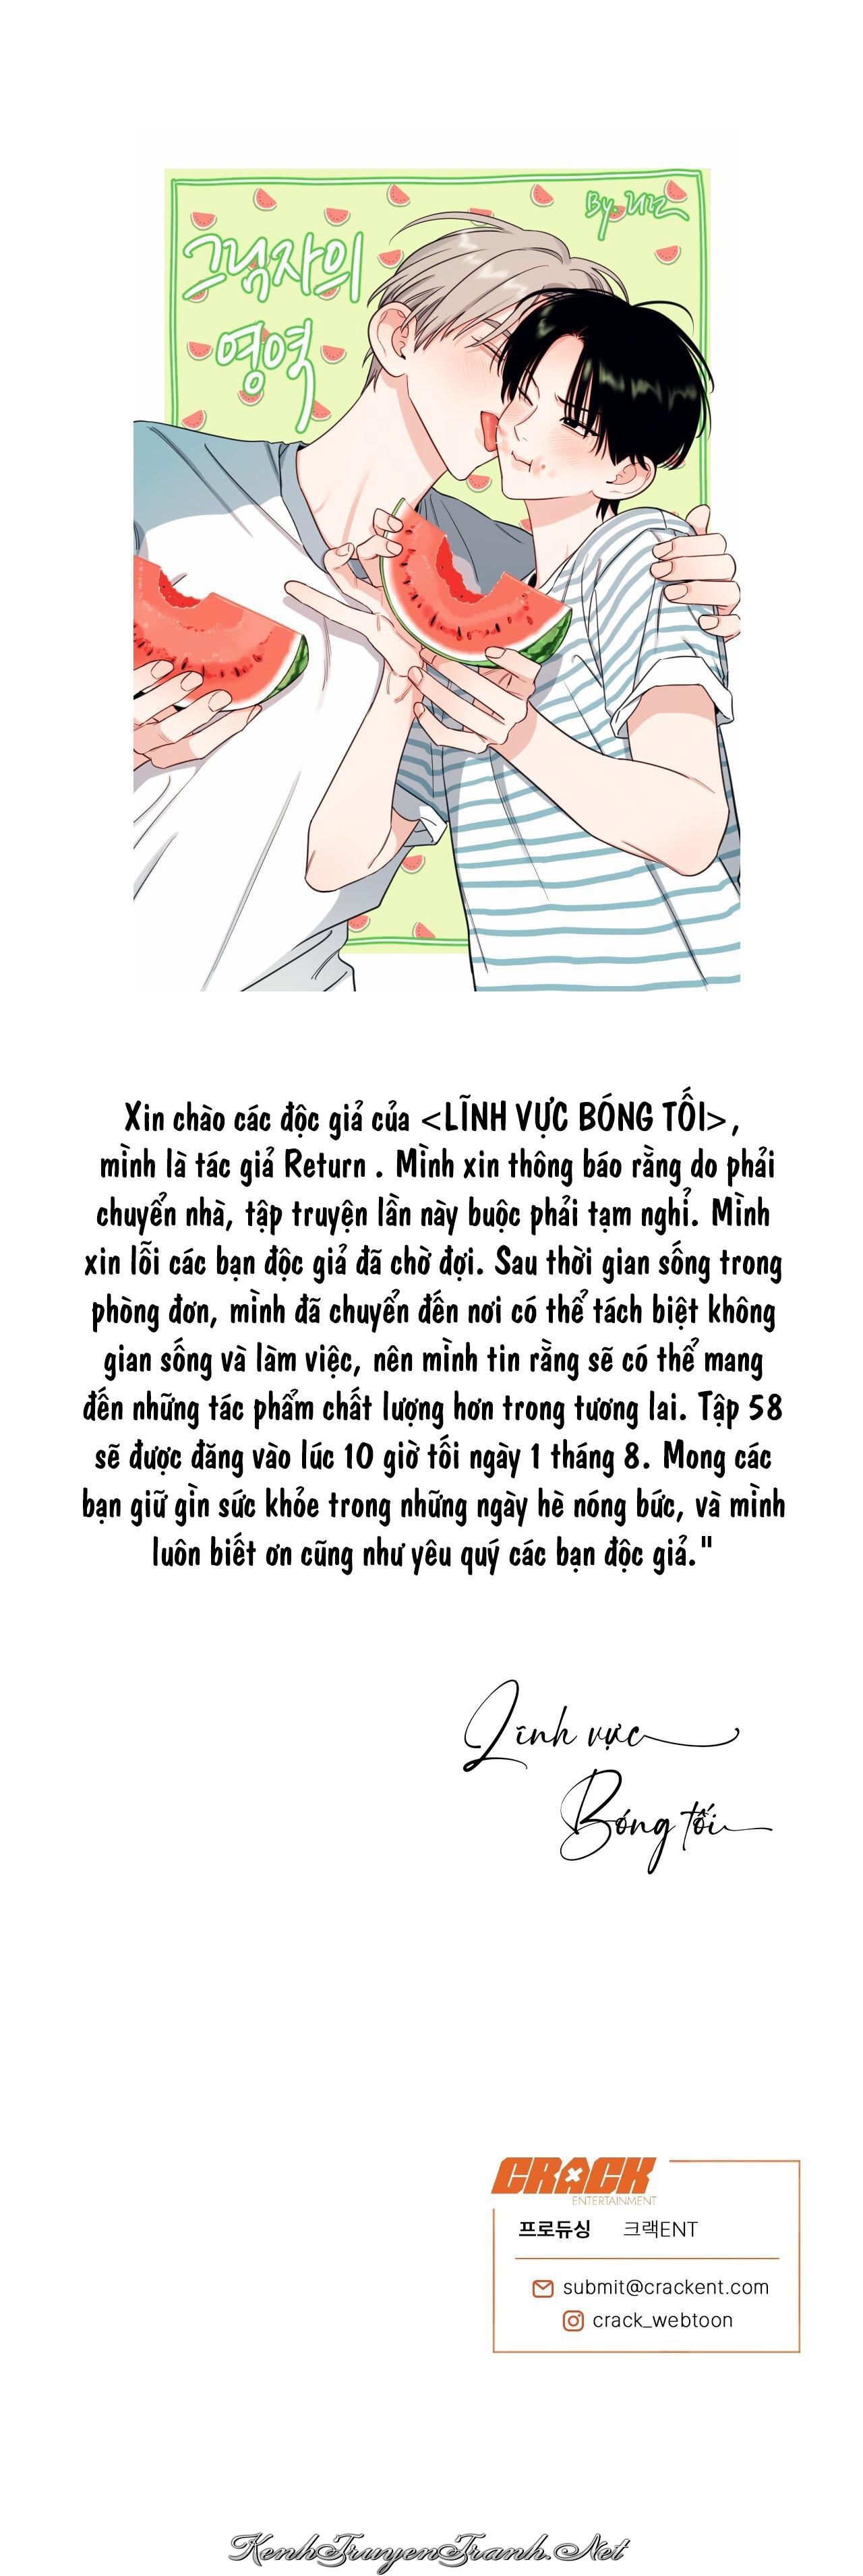 그림자의
영역
By. 리턴
Xin chào các độc giả của <LĨNH VỰC BÓNG TỐI>,
mình là tác giả Return . Mình xin thông báo rằng do phải
chuyển nhà, tập truyện lần này buộc phải tạm nghỉ. Mình
xin lỗi các bạn độc giả đã chờ đợi. Sau thời gian sống trong
phòng đơn, mình đã chuyển đến nơi có thể tách biệt không
gian sống và làm việc, nên mình tin rằng sẽ có thể mang
đến những tác phẩm chất lượng hơn trong tương lai. Tập 58
sẽ được đăng vào lúc 10 giờ tối ngày 1 tháng 8. Mong các
bạn giữ gìn sức khỏe trong những ngày hè nóng bức, và mình
luôn biết ơn cũng như yêu quý các bạn độc giả."
Lĩnh vực
Bóng tối
CRACK
ENTERTAINMENT
프로듀싱 크랙ENT
submit@crackent.com
crack_webtoon
KenhTruyenTranh.Net